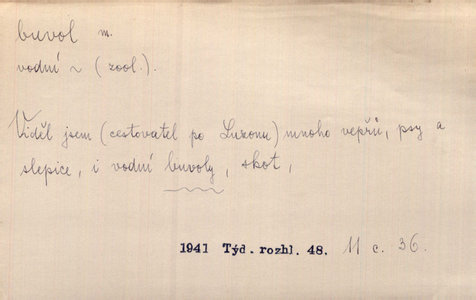 buvol m.
vodní ~ (zool.).
Viděl jsem (cestovatel po Luzonu) mnoho vepřů, psy a
slepice, i vodní buvoly, skot,
1941 Týd. rozhl. 48. 11 c. 36.